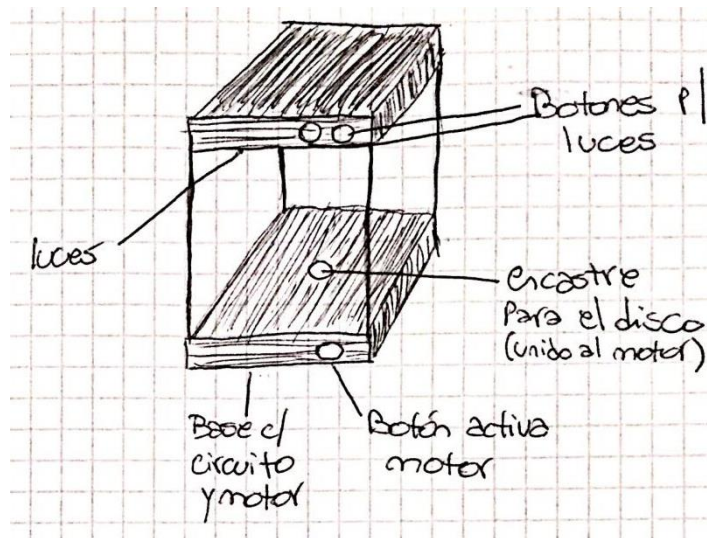 Botones p/
luces
luces
encastre
para el disco
(unido al motor)
Base c/
circuito
y motor
Botón activa
motor